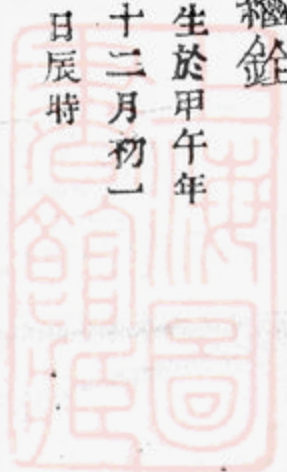 繼銓
生於甲午年
十二月初一
日辰時